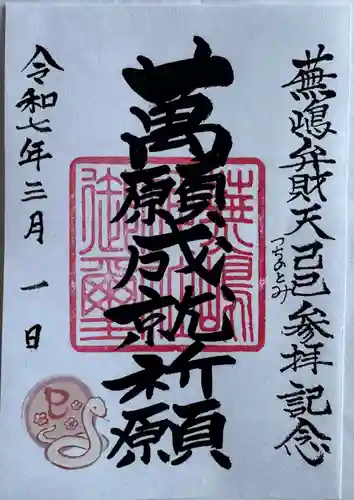 蕪嶋弁財天己巳参拝記念
つちのとみ
萬願成就祈願
蕪嶋神社御璽
令和七年三月一日
巳